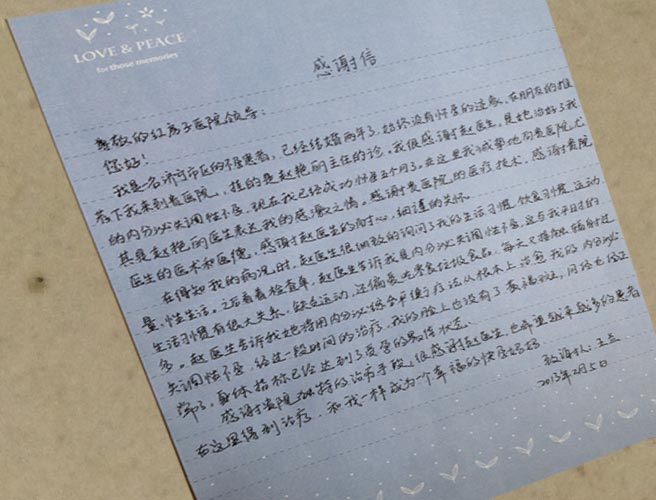 LOVE & PEACE
for those memories
感谢信
尊敬的红房子医院领导:
您好!
我是一名济宁市区的不孕患者,已经结婚两年了,始终没有怀孕的迹象,在朋友的推
荐下我来到贵医院,挂的是赵艳丽主任的诊。我很感谢赵医生,是她治好了我
的内分泌失调性不孕,现在我已经成功怀孕五个月了,在这里我诚挚地向贵医院,尤
其是赵艳丽医生表达我的感激之情,感谢贵医院的医疗技术,感谢贵院
医生的医术和医德,感谢赵医生的耐心、细谨的关怀。
在得知我的病况时,赵医生很细致的询问了我的生活习惯,饮食习惯,运动
量,性生活。之后看着检查单,赵医生告诉我是内分泌失调性不孕,这与我平日的
生活习惯有很大关系,缺乏运动,还偏爱吃零食垃圾食品,每天又接触辐射过
多。赵医生告诉我她将用内分泌综合平衡疗法从根本上治愈我的内分泌
失调性不孕,经过一段时间的治疗,我的脸上也没有了黄褐斑,月经也经正
常了,身体指标已经达到了受孕的最佳状态。
感谢贵院独特的治疗手段,很感谢赵医生,也希望越来越多的患者
在这里得到治疗,和我一样成为一个幸福的快孕妈妈。
致谢人:王兰
2013年2月5日